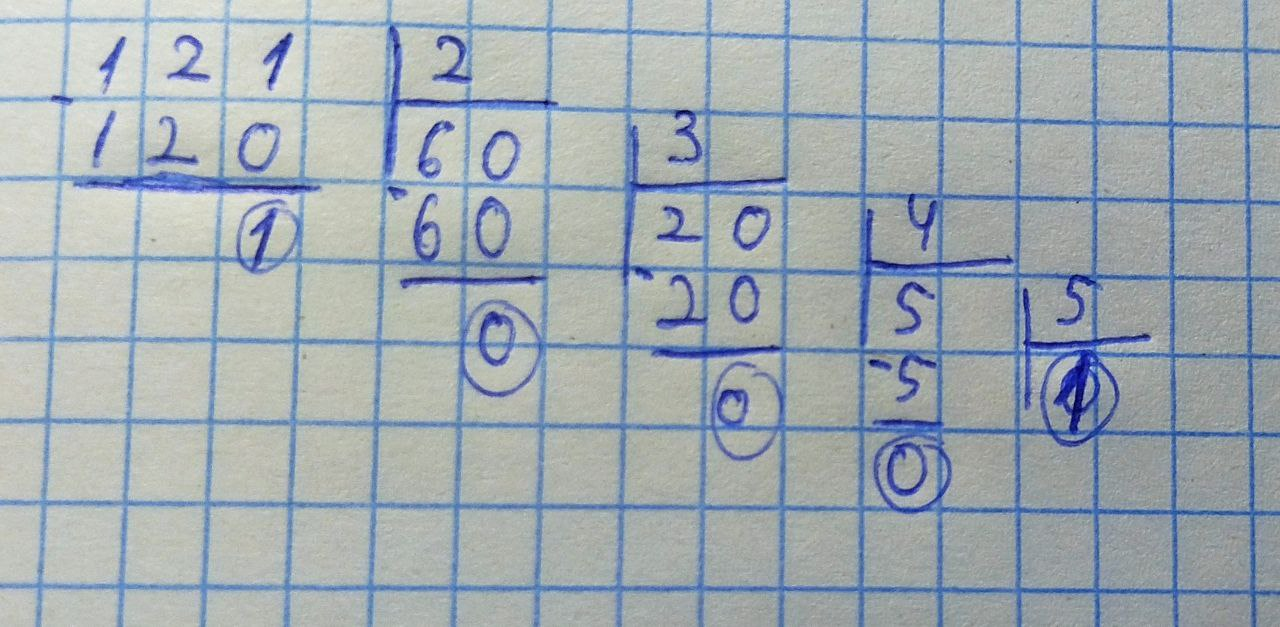 1 2 1 2
- 1 2 0 6 0 3
1 - 6 0 2 0 4
0 - 2 0 5 5
0 - 5 1
0